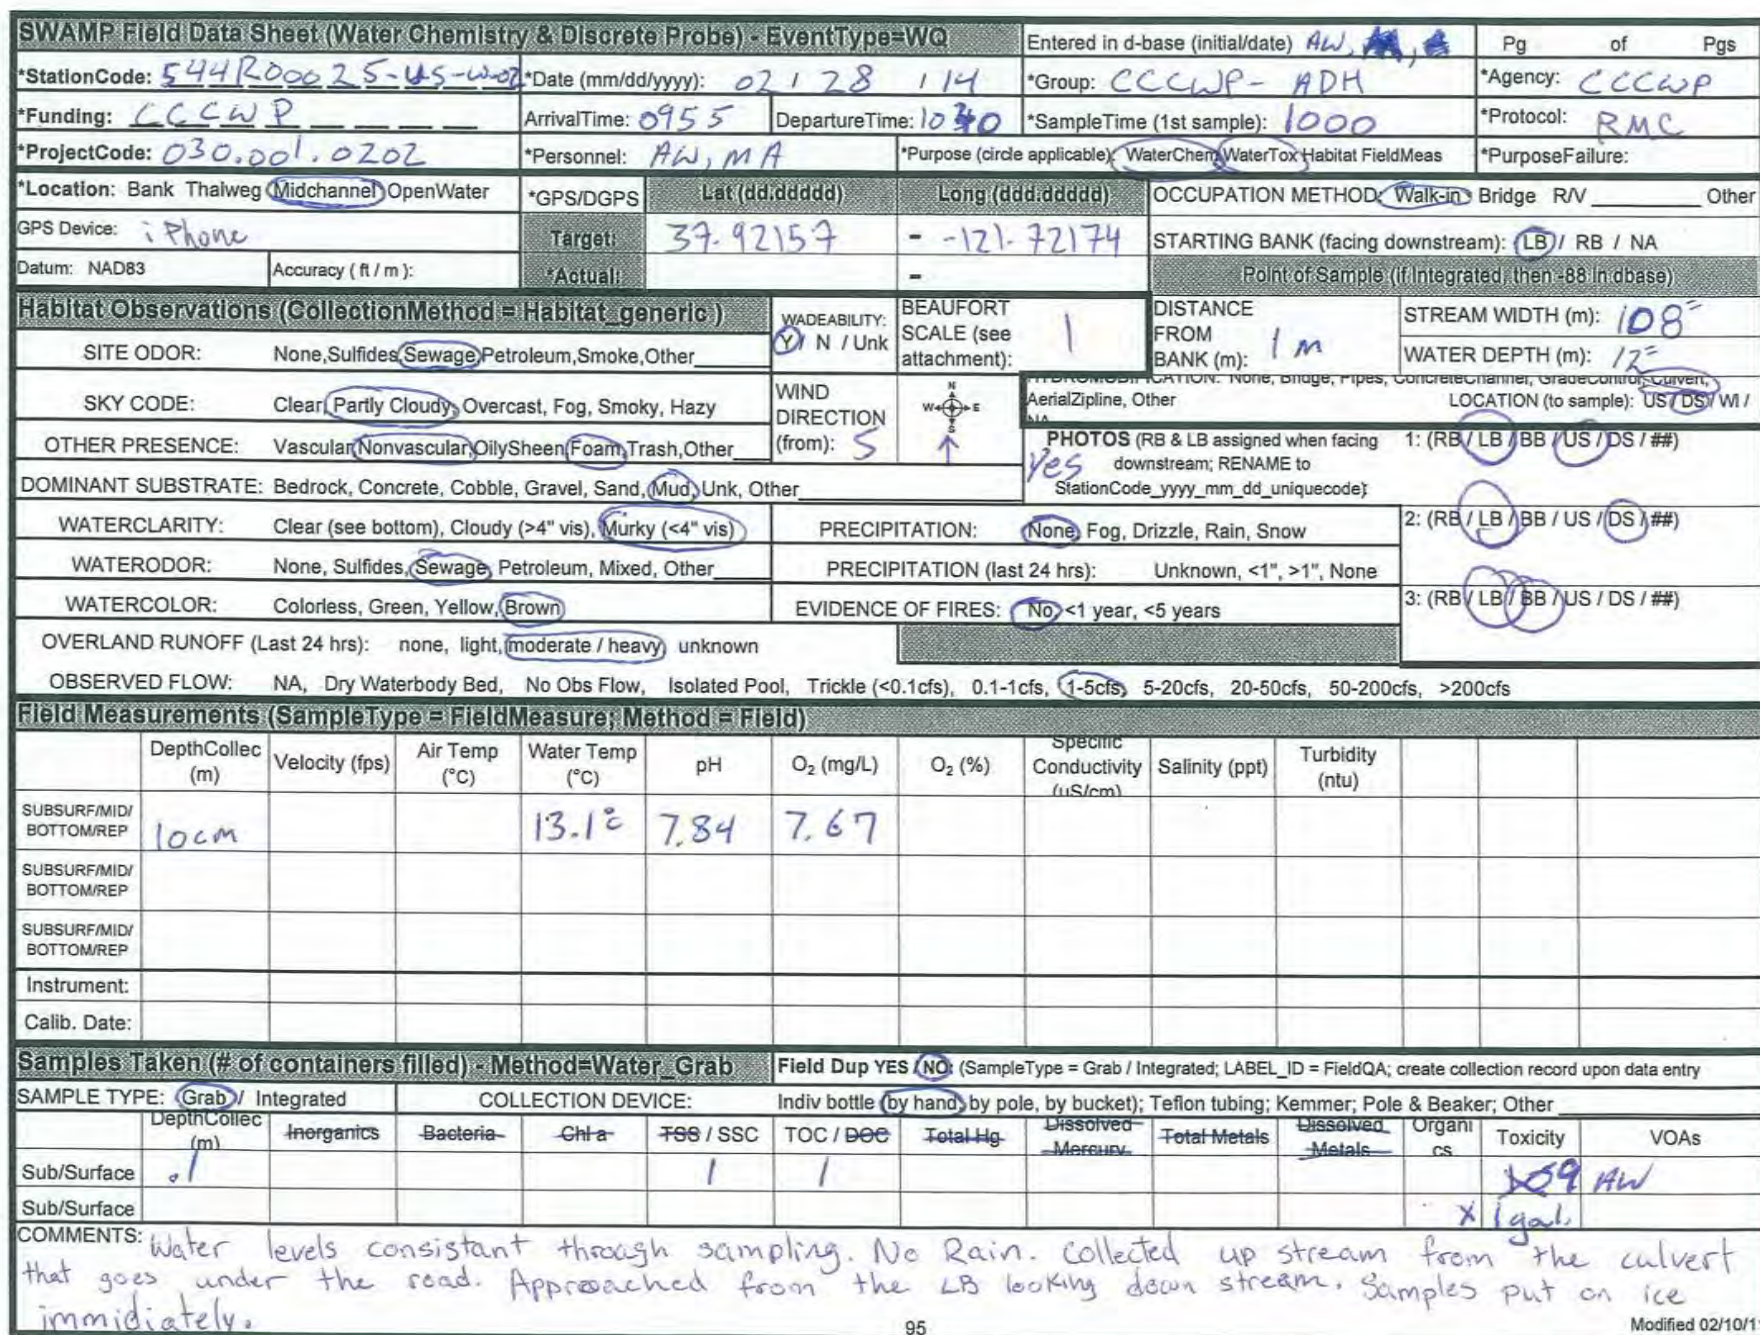 SWAMP Field Data Sheet (Water Chemistry & Discrete Probe) - EventType=WQ Entered in d-base (initial/date) AW, Pg of Pgs
*StationCode: 544R00025-US-W-02 *Date (mm/dd/yyyy): 02 / 28 / 14 *Group: CCCWP- ADH *Agency: CCCWP
*Funding: CCCWP ArrivalTime: 0955 DepartureTime: *SampleTime (1st sample): 1000 *Protocol: RMC
*ProjectCode: 030.001.0202 *Personnel: AW, MA *Purpose (circle applicable): WaterChem WaterTox Habitat FieldMeas *PurposeFailure:
*Location: Bank Thalweg Midchannel OpenWater *GPS/DGPS Lat (dd.ddddd) Long (ddd.ddddd) OCCUPATION METHOD: Walk-in Bridge R/V Other
GPS Device: iPhone Target: 37.92157 - -121.72174 STARTING BANK (facing downstream): LB / RB / NA
Datum: NAD83 Accuracy ( ft / m ): *Actual: - Point of Sample (if Integrated, then -88 in dbase)
Habitat Observations (CollectionMethod = Habitat_generic ) WADEABILITY: Y / N / Unk BEAUFORT SCALE (see attachment): 1 DISTANCE FROM BANK (m): 1 m STREAM WIDTH (m): 108"
SITE ODOR: None,Sulfides,Sewage,Petroleum,Smoke,Other WATER DEPTH (m): 12"
SKY CODE: Clear, Partly Cloudy, Overcast, Fog, Smoky, Hazy WIND DIRECTION (from): S N W E S HYDROMODIFICATION: None, Bridge, Pipes, ConcreteChannel, GradeControl, Culvert,
AerialZipline, Other LOCATION (to sample): US / DS / WI /
NA
OTHER PRESENCE: Vascular,Nonvascular,OilySheen,Foam,Trash,Other PHOTOS (RB & LB assigned when facing downstream; RENAME to StationCode_yyyy_mm_dd_uniquecode) Yes 1: (RB / LB / BB / US / DS / ##)
DOMINANT SUBSTRATE: Bedrock, Concrete, Cobble, Gravel, Sand, Mud, Unk, Other
WATERCLARITY: Clear (see bottom), Cloudy (>4" vis), Murky (<4" vis) PRECIPITATION: None, Fog, Drizzle, Rain, Snow 2: (RB / LB / BB / US / DS / ##)
WATERODOR: None, Sulfides, Sewage, Petroleum, Mixed, Other PRECIPITATION (last 24 hrs): Unknown, <1", >1", None
WATERCOLOR: Colorless, Green, Yellow, Brown EVIDENCE OF FIRES: No, <1 year, <5 years 3: (RB / LB / BB / US / DS / ##)
OVERLAND RUNOFF (Last 24 hrs): none, light, moderate / heavy, unknown
OBSERVED FLOW: NA, Dry Waterbody Bed, No Obs Flow, Isolated Pool, Trickle (<0.1cfs), 0.1-1cfs, 1-5cfs, 5-20cfs, 20-50cfs, 50-200cfs, >200cfs
Field Measurements (SampleType = FieldMeasure; Method = Field)
DepthCollec (m) Velocity (fps) Air Temp (°C) Water Temp (°C) pH O2 (mg/L) O2 (%) Specific Conductivity (uS/cm) Salinity (ppt) Turbidity (ntu)
SUBSURF/MID/ BOTTOM/REP 10cm 13.1°C 7.84 7.67
SUBSURF/MID/ BOTTOM/REP
SUBSURF/MID/ BOTTOM/REP
Instrument:
Calib. Date:
Samples Taken (# of containers filled) - Method=Water_Grab Field Dup YES / NO: (SampleType = Grab / Integrated; LABEL_ID = FieldQA; create collection record upon data entry
SAMPLE TYPE: Grab / Integrated COLLECTION DEVICE: Indiv bottle (by hand, by pole, by bucket); Teflon tubing; Kemmer; Pole & Beaker; Other
DepthCollec (m) Inorganics Bacteria Chl a TSS / SSC TOC / DOC Total Hg Dissolved Mercury Total Metals Dissolved Metals Organi cs Toxicity VOAs
Sub/Surface .1 1 1 AW
Sub/Surface x 1 gal.
COMMENTS: Water levels consistant through sampling. No Rain. Collected up stream from the culvert
that goes under the road. Approached from the LB looking down stream. Samples put on ice
immidiately.
95 Modified 02/10/1